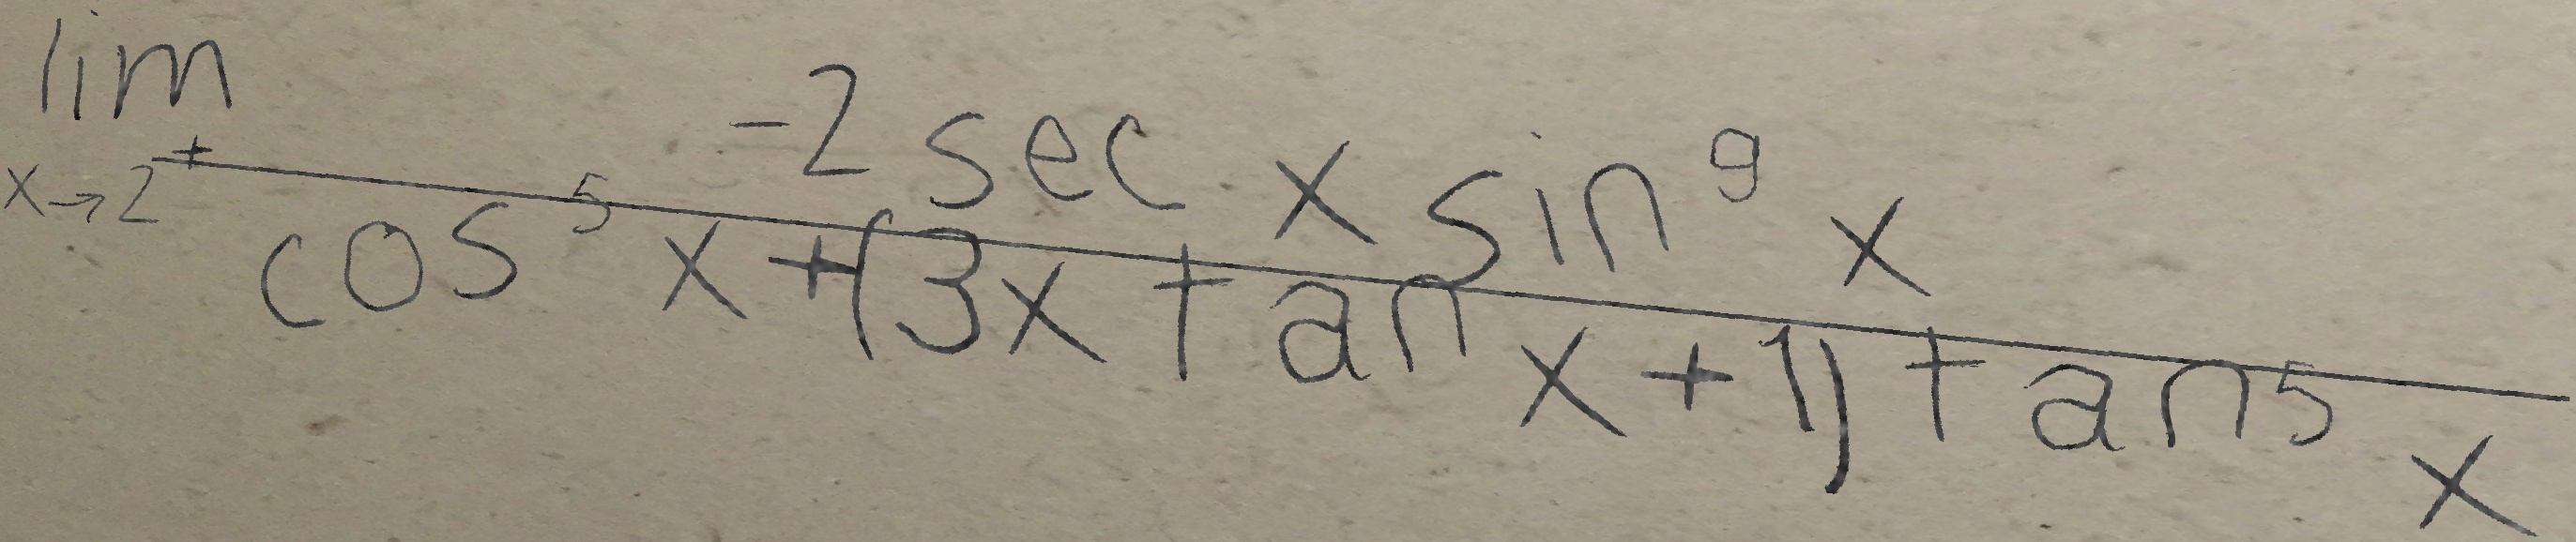 \lim_{x \to 2^+} \frac{-2 \sec x \sin^9 x}{\cos^5 x + (3x \tan x + 1) \tan^5 x}